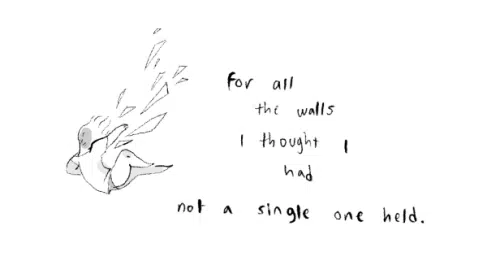 for all
the walls
I thought I
had
not a single one held.